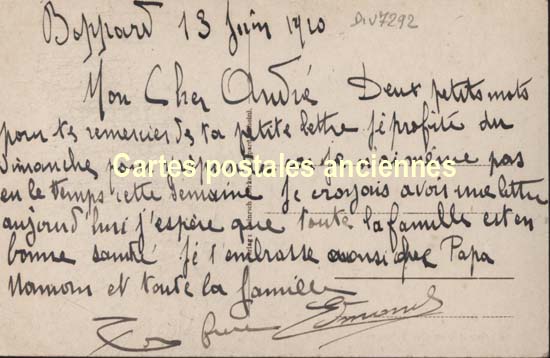 Boppard 13 Juin 1920 Div7292
Mon Cher André Deux petits mots
pour te remercier de ta petite lettre je profite du
Dimanche pour car je n'ai même pas
Cartes postales anciennes
eu le temps cette semaine je croyais avoir une lettre
aujourd'hui j'espère que toute la famille est en
bonne santé je t'embrasse aussi Papa
Maman et toute la famille
Ton frère Edmond